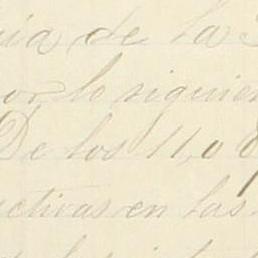 cia de la
por lo siguien
De los 11,0
ectivas en las